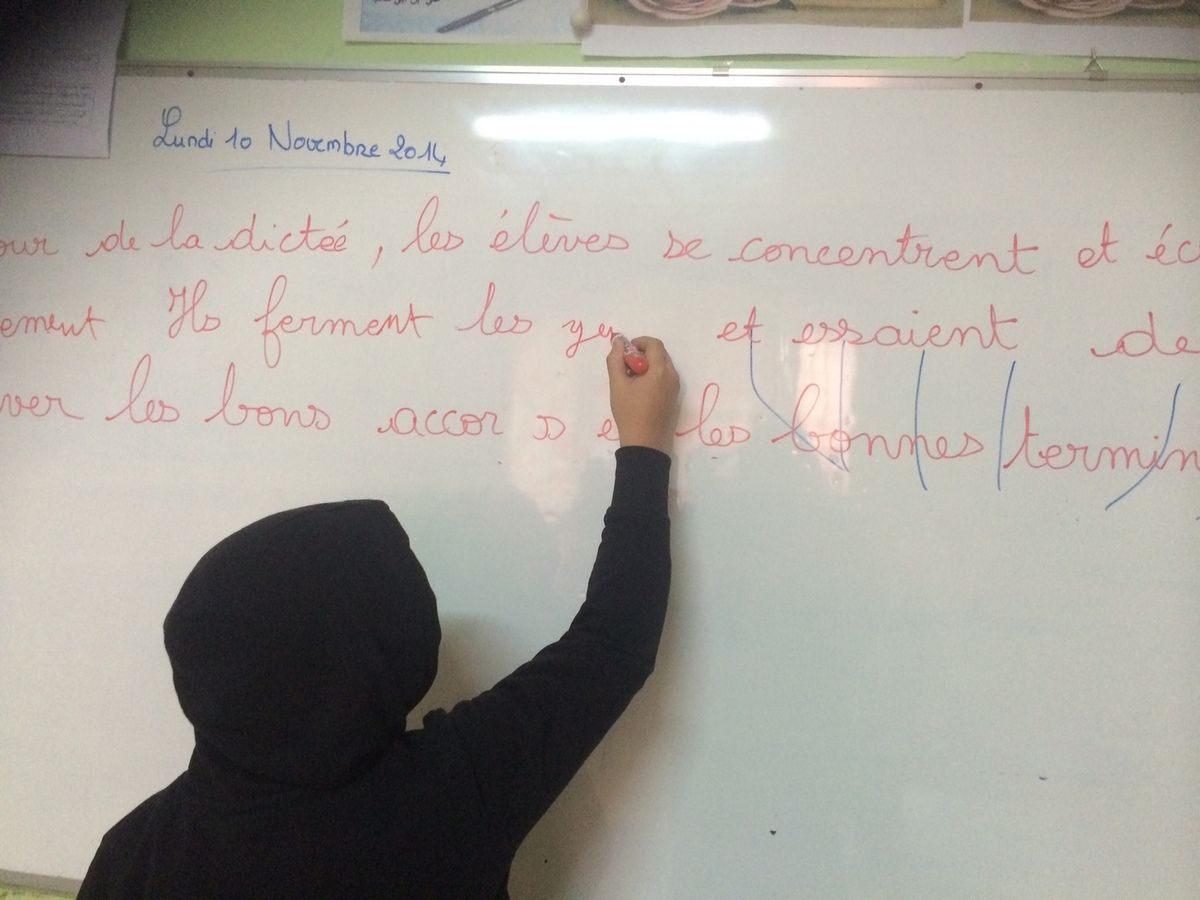 Lundi 10 Novembre 2014
our de la dicteé, les élèves se concentrent et éc
ement Ils ferment les yeu et essaient de
ver les bons accor s e les bonnes termin